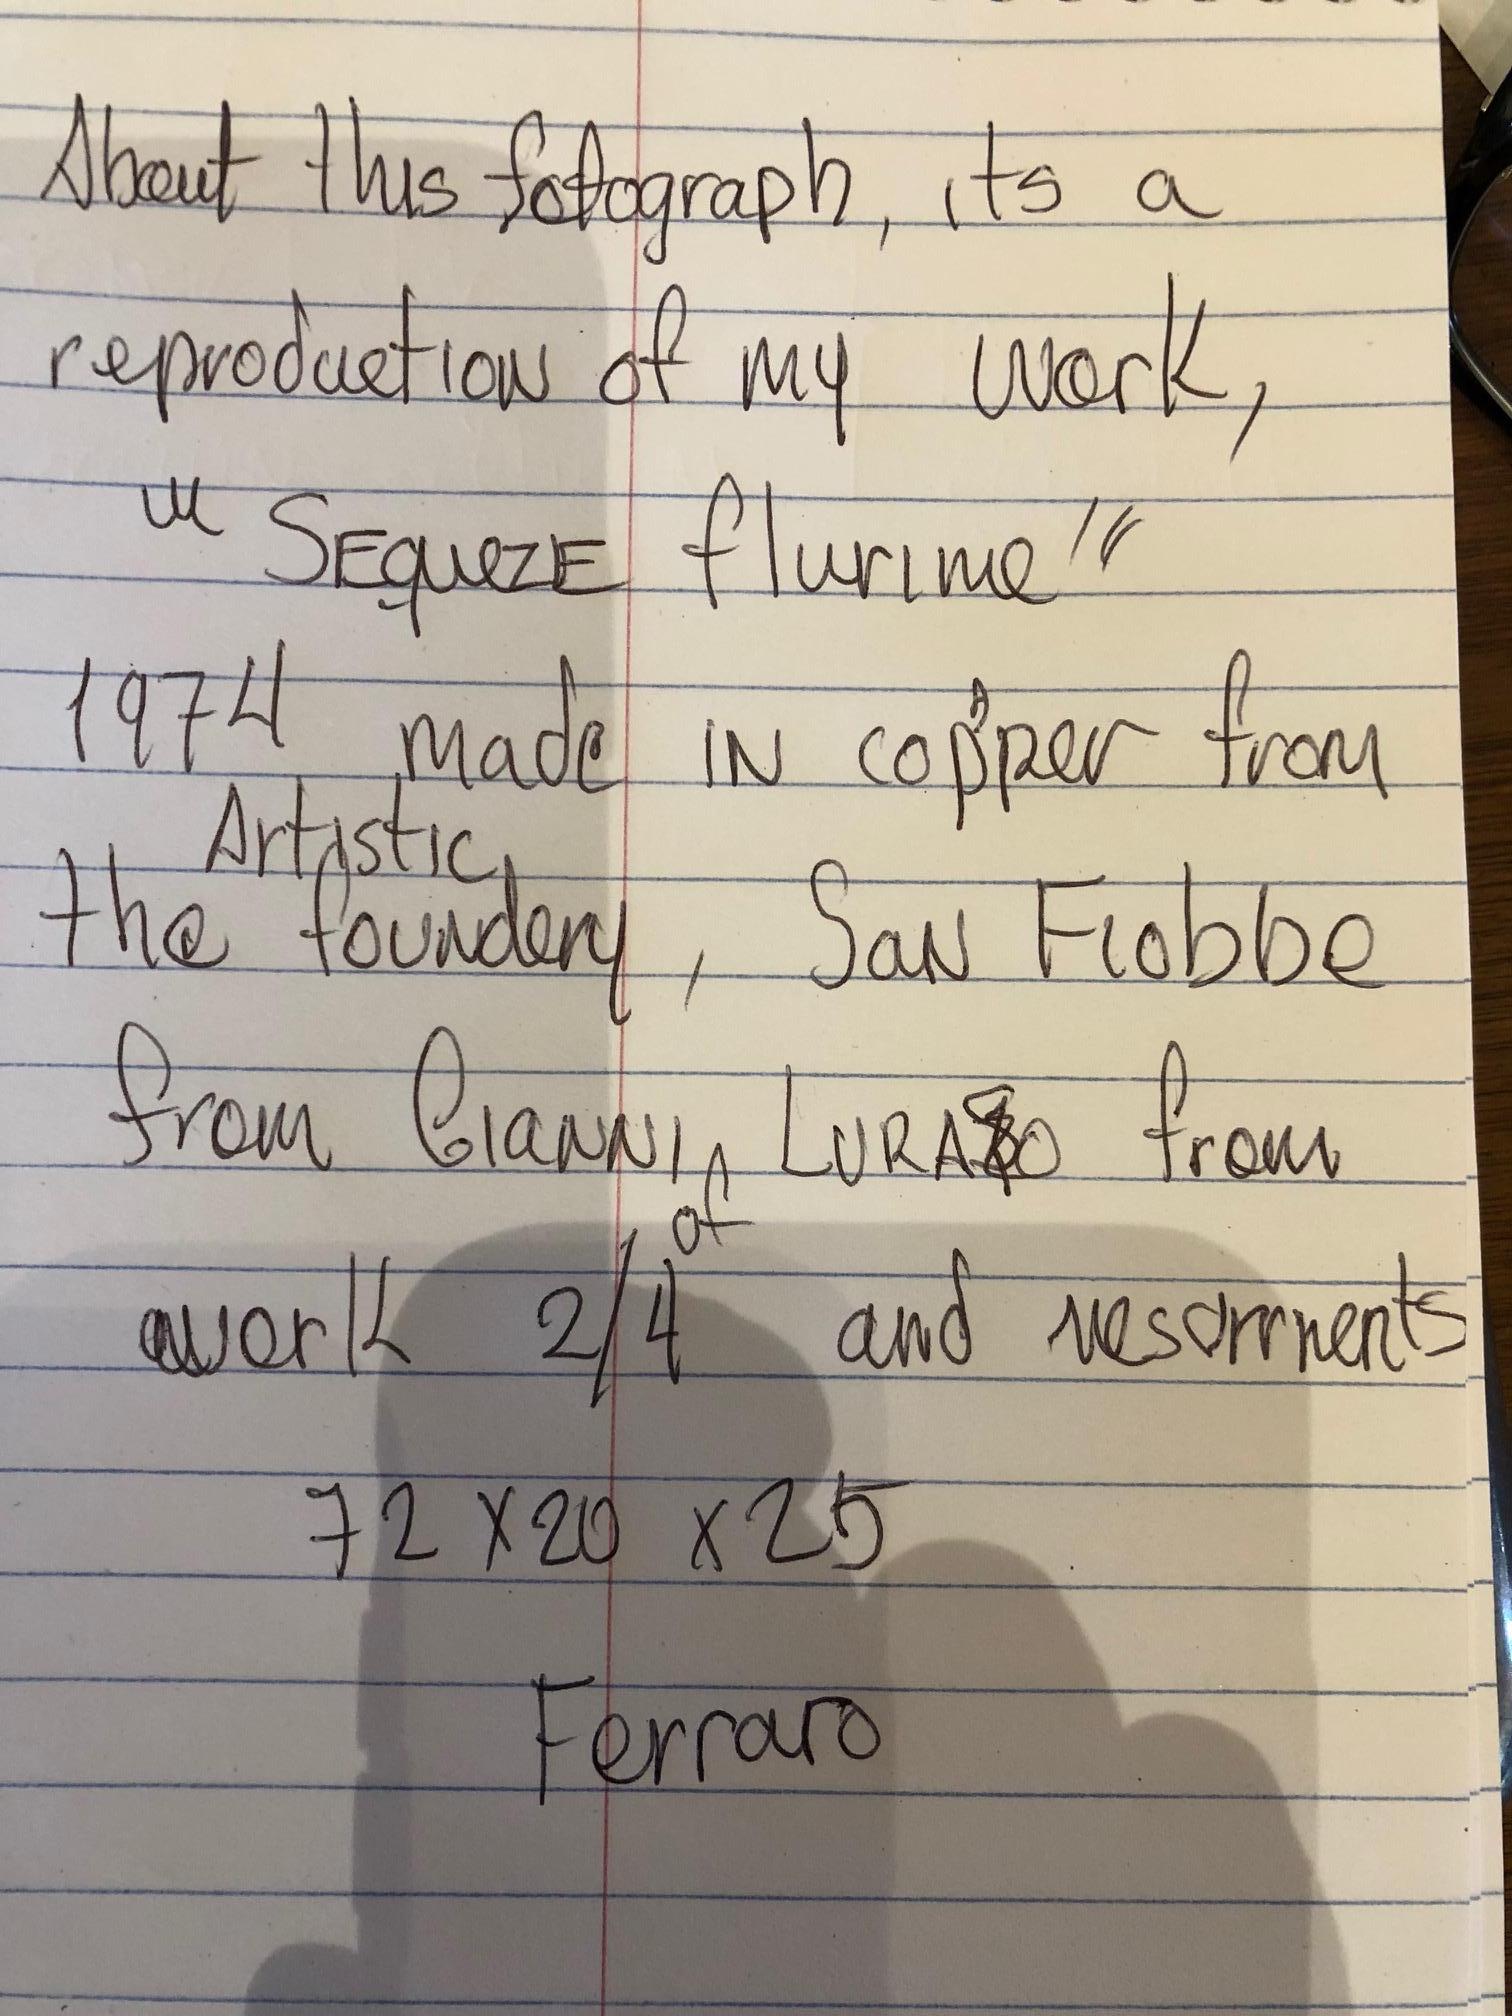 About this fotograph, its a
reproduction of my work,
"SEquEZE flurime"
1974 made IN copper from
Artistic
the foundery, San Fiobbe
from Gianni, LURAZO from
of
work 2/4 and
72 x 20 x 25
Ferraro